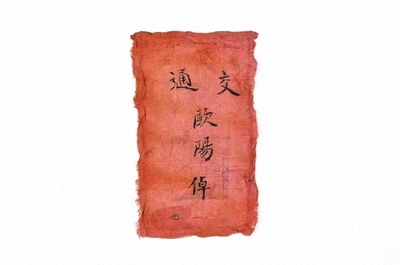 交通
歐陽倬